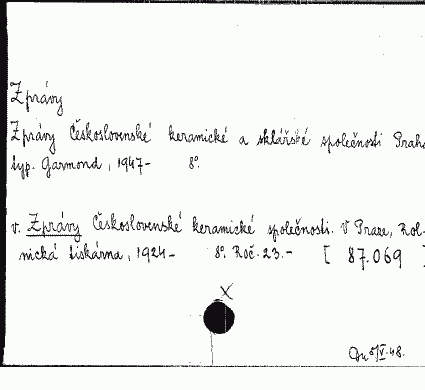 Zprávy
Zprávy Československé keramické a sklářské společnosti Praha
typ. Garmond, 1947- 8°.
v. Zprávy Československé keramické společnosti. V Praze, Rol-
nická tiskárna, 1924- 8°. Roč. 23.- [ 87.069 ]
X
V 48.